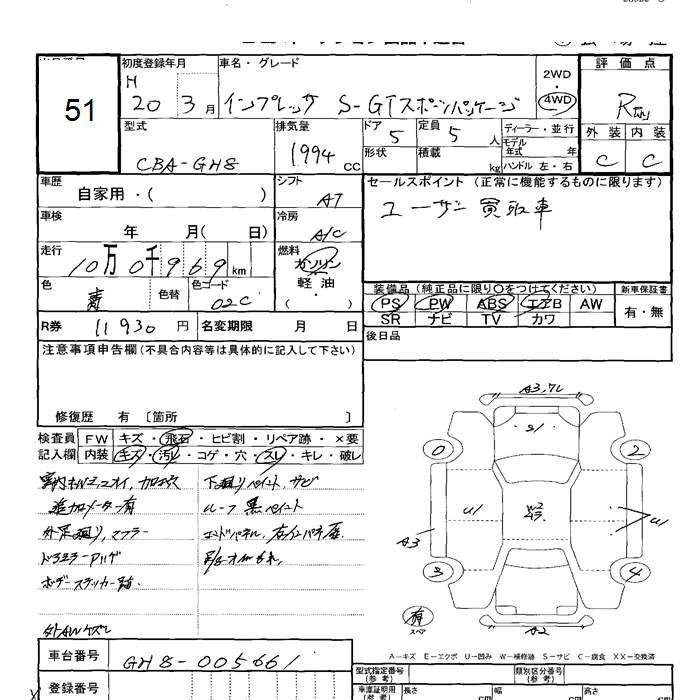 51
初度登録年月
H
20 3月
車名・グレード
インプレッサ S-GTスポーツパッケージ
2WD
・
4WD
評価点
R
外装 内装
C C
型式
CBA-GH8
排気量
1994 CC
ドア 5
定員 5 人
形状
積載 kg
ディーラー・並行
モデル年式 年
ハンドル 左・右
車歴
自家用・( )
シフト
AT
セールスポイント (正常に機能するものに限ります)
ユーザー買取車
車検
年 月( 日)
冷房
A/C
走行
10万0千969km
燃料
ガソリン
軽油
( ・ )
色
青
色替
色コード
02C
装備品 (純正品に限り○をつけてください)
新車保証書
PS PW ABS エアB AW
有・無
SR ナビ TV カワ
R券 11930円
名変期限 月 日
後日品
注意事項申告欄 (不具合内容等は具体的に記入して下さい)
修復歴 有 〔箇所 〕
検査員記入欄
FW キズ・飛石・ヒビ割・リペア跡・×要
内装 キズ・汚レ・コゲ・穴・スレ・キレ・破レ
追加メーター有
下廻りペイント、サビ
ルーフ黒ペイント
エンドパネル、
A3,7L
S1
0
2
U1
W2
U1
A3
3
4
有
スペア
A2
A-キズ E-エクボ U-凹み W-補修跡 S-サビ C-腐食 XX-交換済
車台番号 GH8-005661
登録番号
型式指定番号(参考)
類別区分番号(参考)
車庫証明用(参考)
長さ cm
幅 cm
高さ